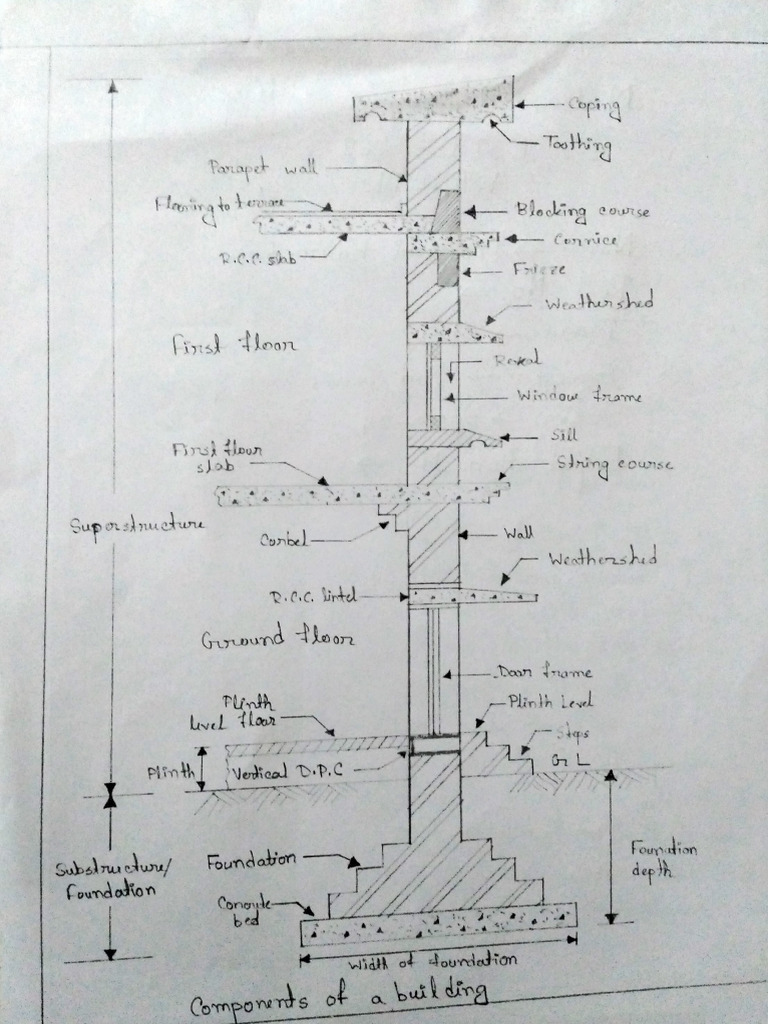 Coping
Toothing
Parapet wall
Flooring to terrace
Blocking course
Cornice
R.C.C. slab
Frieze
Weathershed
First floor
Reveal
Window frame
Sill
First floor
slab
String course
Superstructure
Corbel
Wall
Weathershed
R.C.C. lintel
Ground floor
Door frame
Plinth
level floor
Plinth Level
Steps
G L
Plinth
Vertical D.P.C
Substructure/
Foundation
Foundation
Foundation
depth
Concrete
bed
Width of foundation
Components of a building